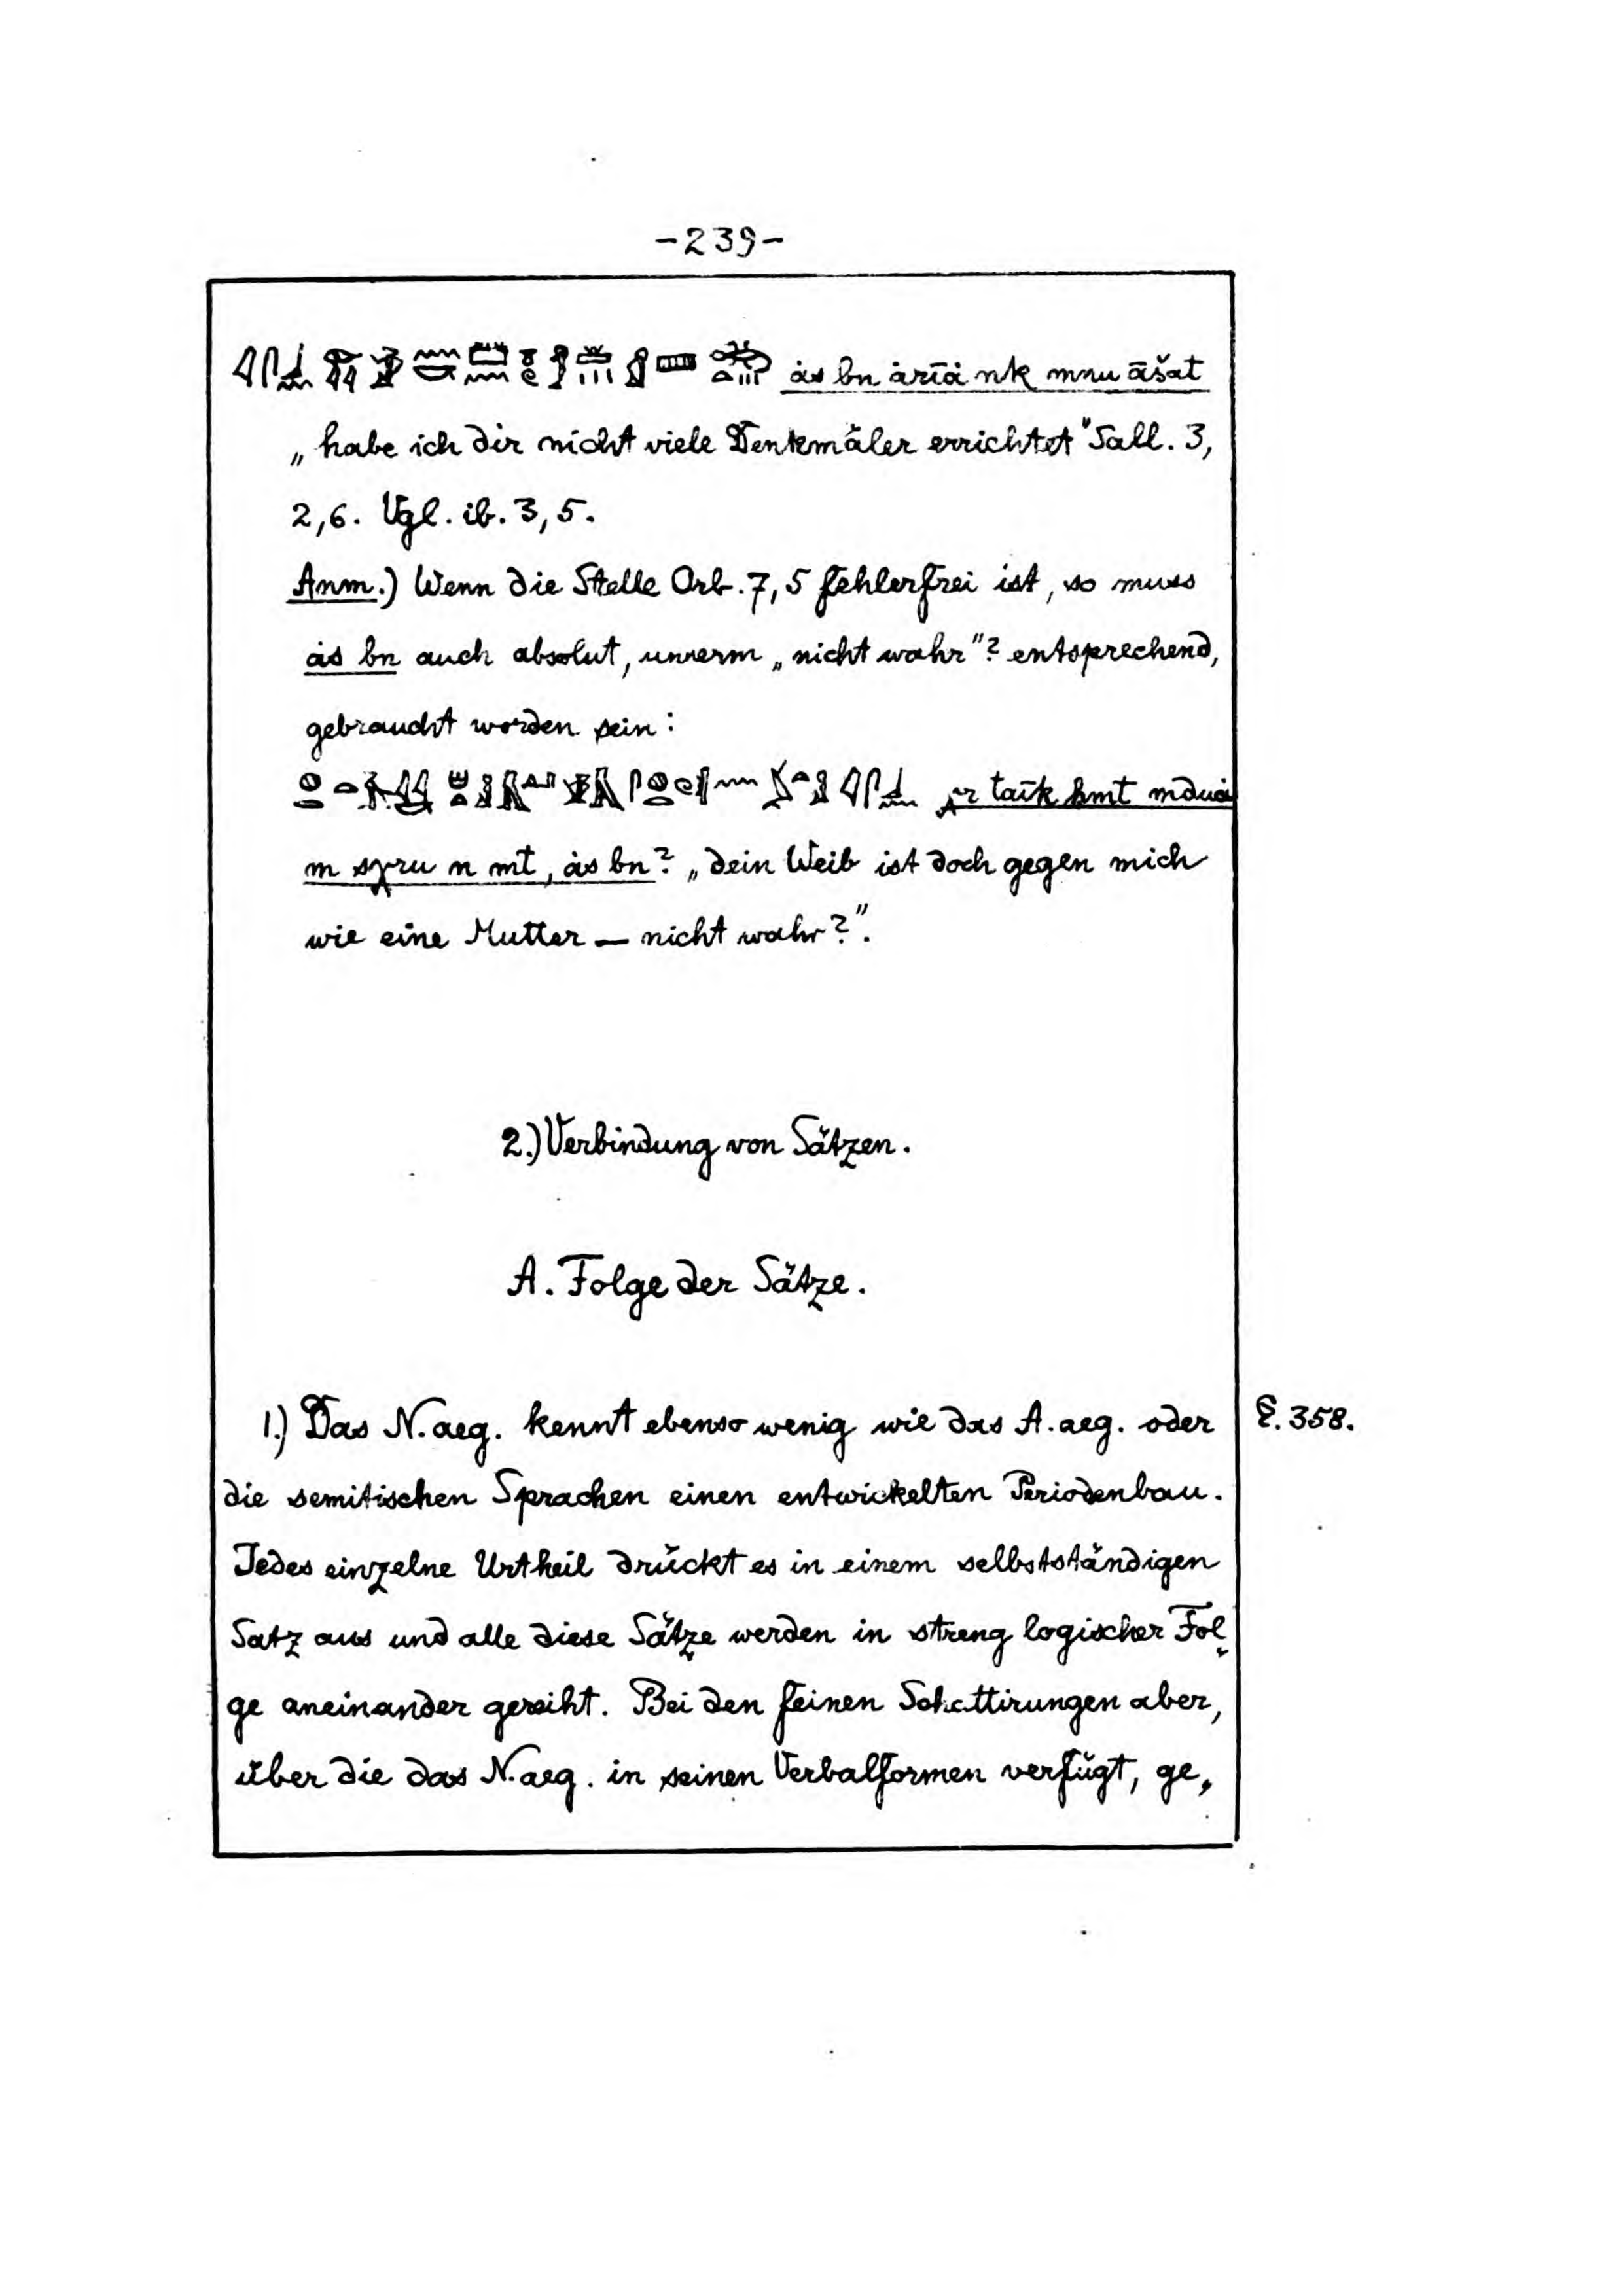 -239-
ȧs bn ȧrīȧ nk mnu āšat
„habe ich dir nicht viele Denkmäler errichtet" Sall. 3,
2,6. Vgl. ib. 3,5.
Anm.) Wenn die Stelle Orb. 7,5 fehlerfrei ist, so muss
ȧs bn auch absolut, unserm „nicht wahr"? entsprechend,
gebraucht worden sein:
χr taīk hmt mduȧ
m sχru n mt, ȧs bn? „dein Weib ist doch gegen mich
wie eine Mutter — nicht wahr?".
2.) Verbindung von Sätzen.
A. Folge der Sätze.
1.) Das N. aeg. kennt ebenso wenig wie das A. aeg. oder §. 358.
die semitischen Sprachen einen entwickelten Periodenbau.
Jedes einzelne Urtheil drückt es in einem selbstständigen
Satz aus und alle diese Sätze werden in streng logischer Fol-
ge aneinander gereiht. Bei den feinen Schattirungen aber,
über die das N. aeg. in seinen Verbalformen verfügt, ge-